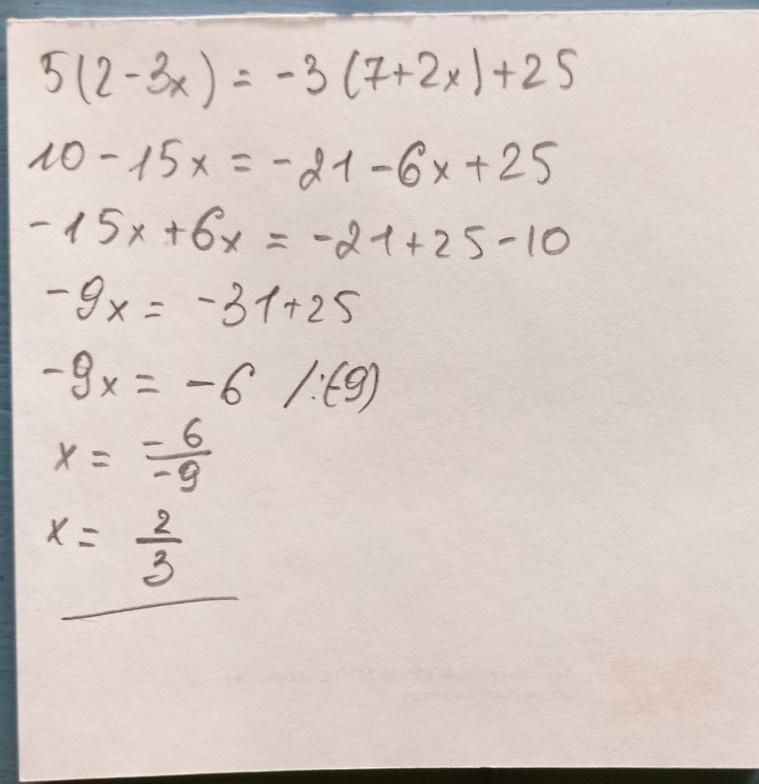 5(2-3x) = -3(7+2x)+25
10-15x = -21-6x+25
-15x+6x = -21+25-10
-9x = -31+25
-9x = -6 /:(-9)
x = -6/-9
x = 2/3